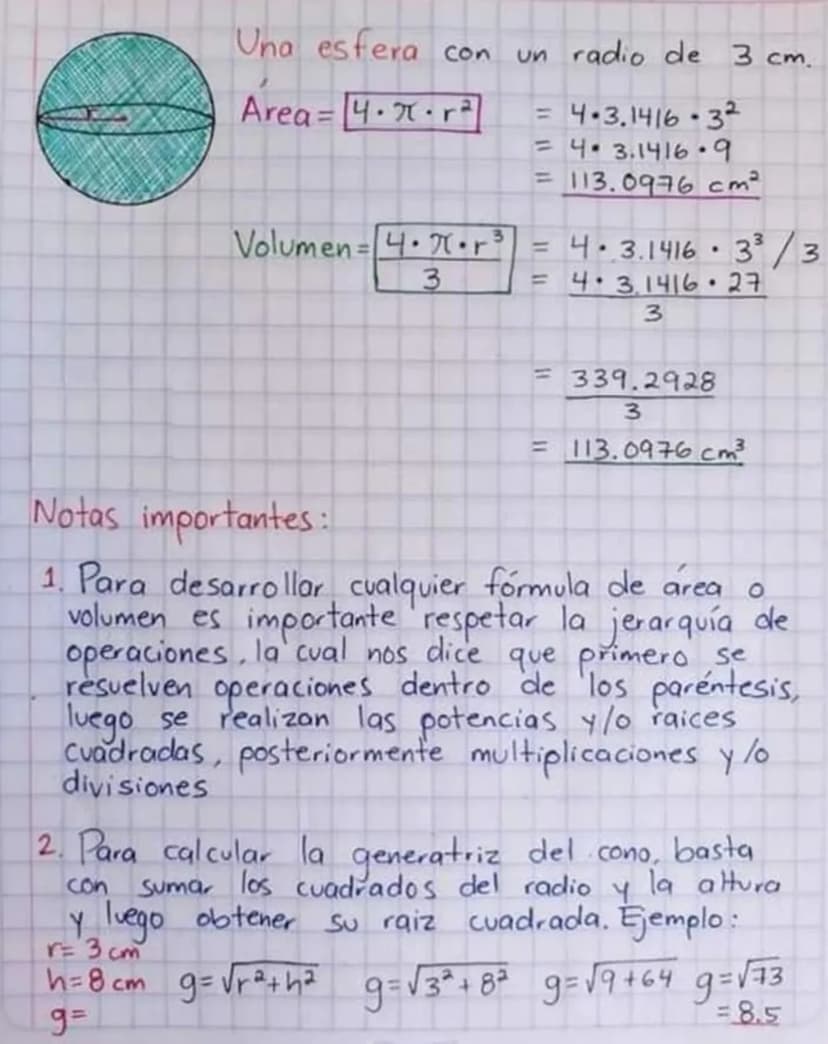 Una esfera con un radio de 3 cm.
r
Área = 4 • π • r² = 4 • 3.1416 • 3²
= 4 • 3.1416 • 9
= 113.0976 cm²
Volumen = 4 • π • r³ / 3 = 4 • 3.1416 • 3³ / 3
= 4 • 3.1416 • 27 / 3
= 339.2928 / 3
= 113.0976 cm³
Notas importantes:
1. Para desarrollar cualquier fórmula de área o
volumen es importante respetar la jerarquía de
operaciones, la cual nos dice que primero se
resuelven operaciones dentro de los paréntesis,
luego se realizan las potencias y/o raices
cuadradas, posteriormente multiplicaciones y/o
divisiones
2. Para calcular la generatriz del cono, basta
con sumar los cuadrados del radio y la altura
y luego obtener su raiz cuadrada. Ejemplo:
r= 3 cm
h= 8 cm g=√r²+h² g=√3²+8² g=√9+64 g=√73
g= = 8.5